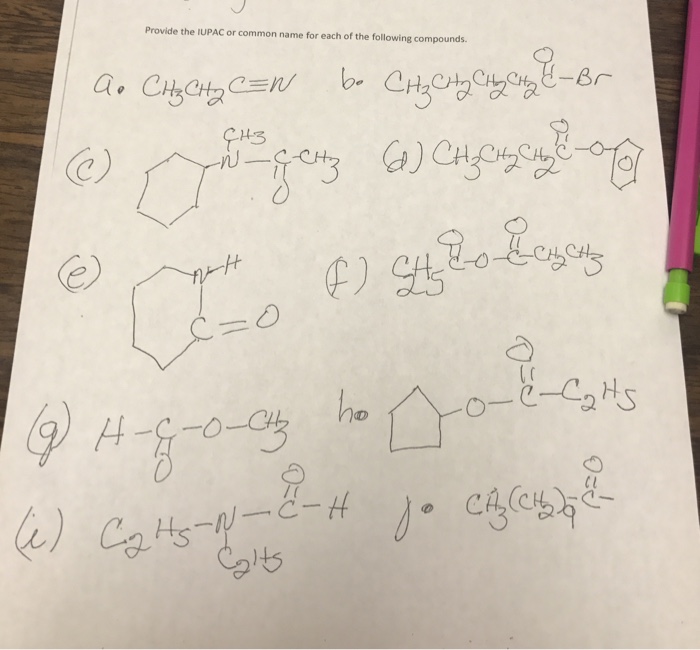 Provide the IUPAC or common name for each of the following compounds.
a. CH3CH2C≡N b. CH3CH2CH2CH2C(=O)-Br
(c) CH3 -N-C-CH3 O (d) CH3CH2CH2C(=O)-O- O
(e) N-H C=O (f) C2H5C(=O)-O-C(=O)-CH2CH3
(g) H-C-O-CH3 O h. -O-C(=O)-C2H5
(i) C2H5-N-C(=O)-H C2H5 j. CH3(CH2)9C(=O)-